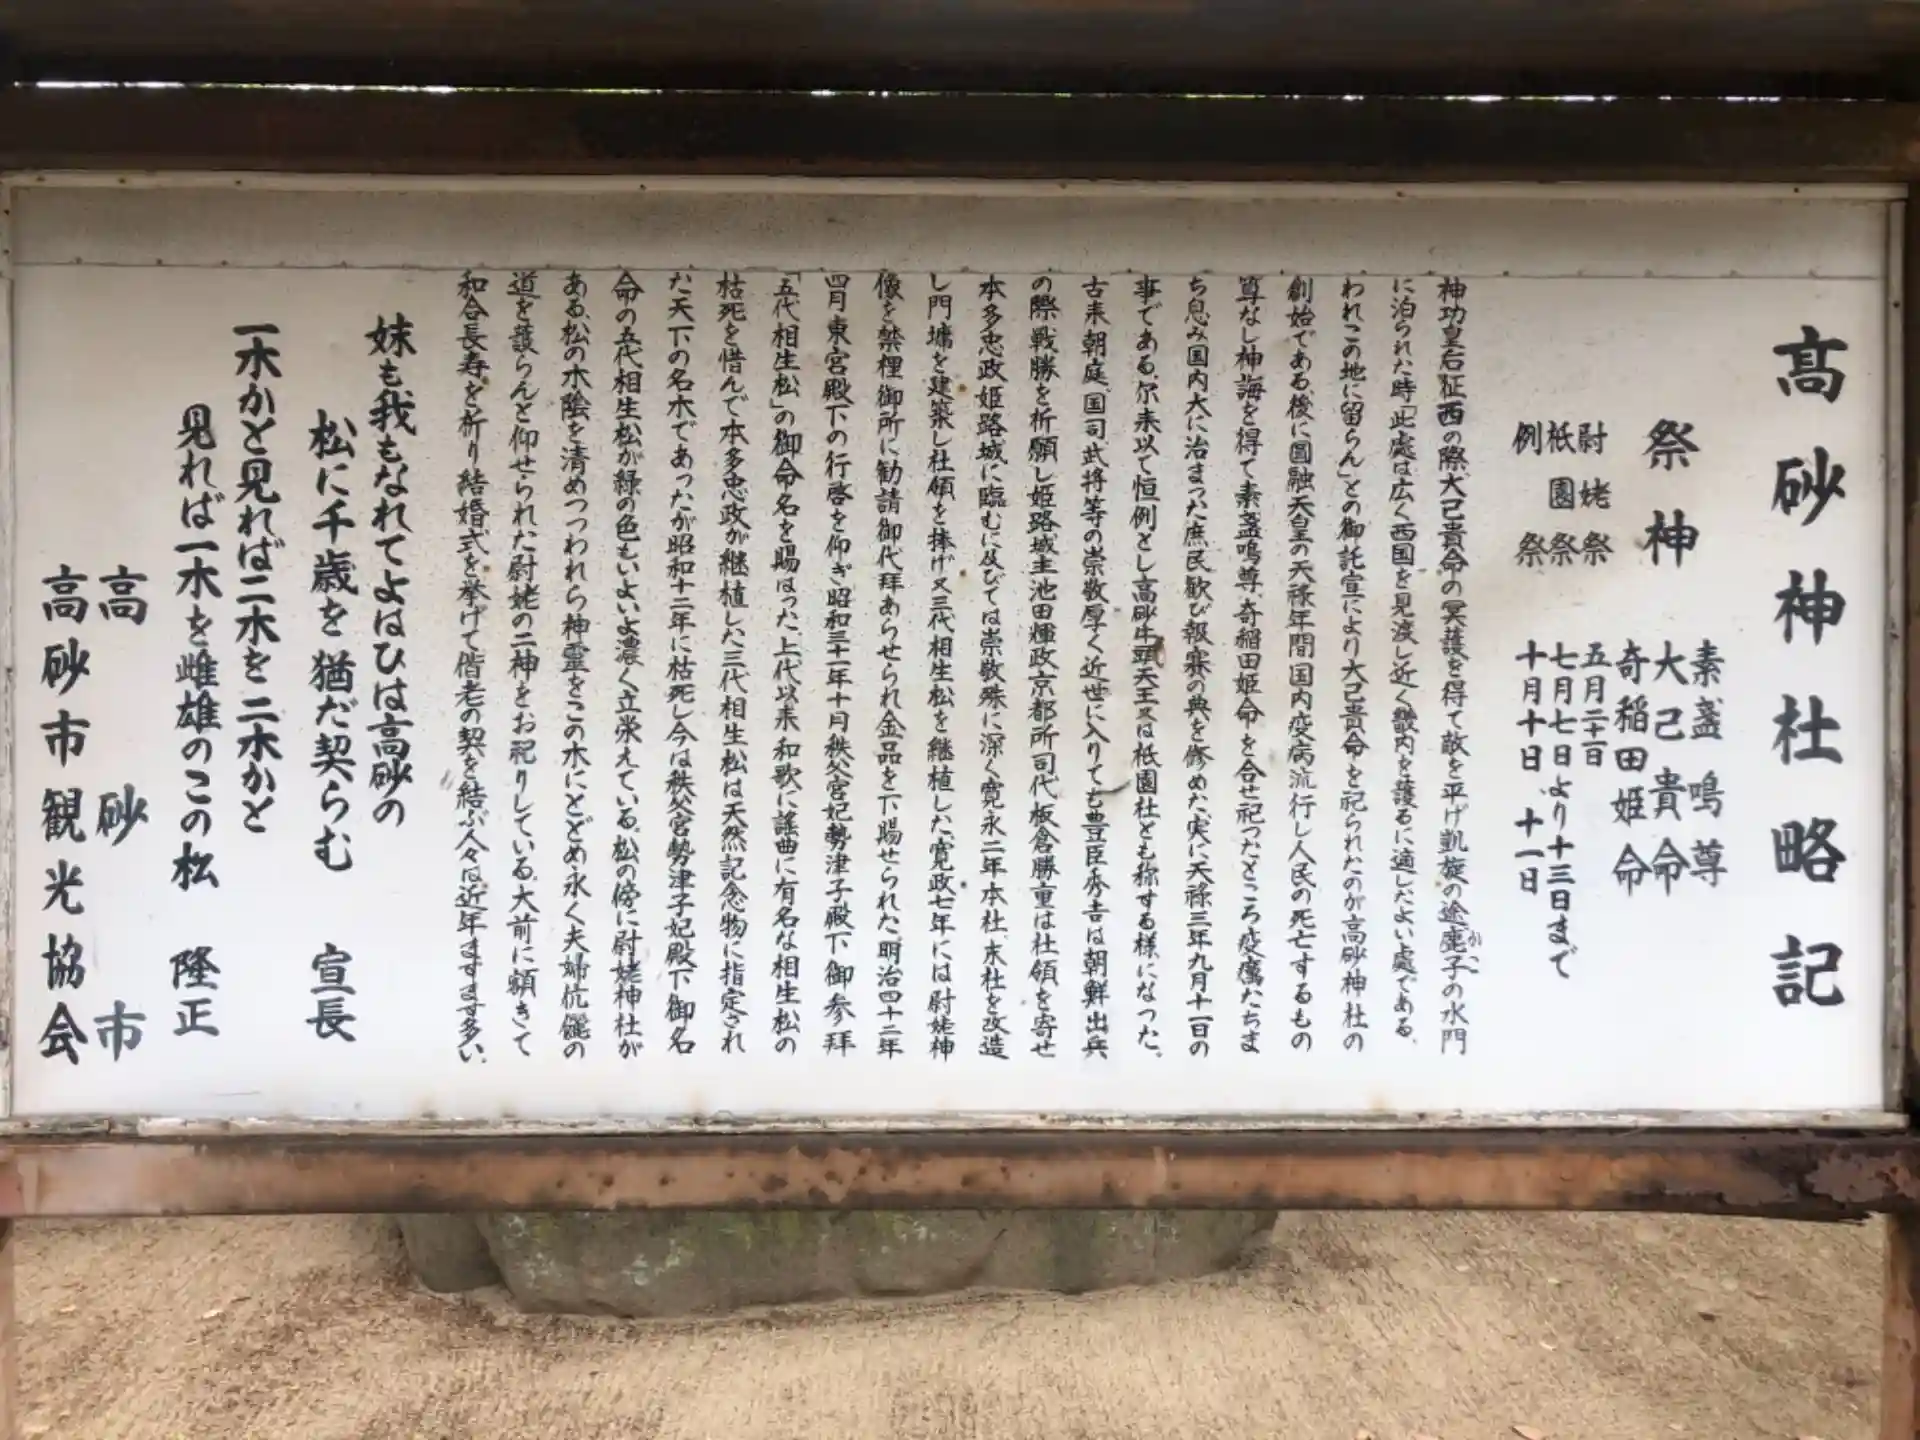 高砂神社略記
祭神
素盞鳴尊
大己貴命
奇稲田姫命
尉姥祭 五月二十一日
祇園祭 七月七日より十三日まで
例祭 十月十日、十一日
神功皇后征西の際大己貴命の冥護を得て敵を平げ凱旋の途鹿子の水門
かこ
に泊られた時「此處は広く西国を見渡し近く畿内を護るに適したよい處である、
われこの地に留らん」との御託宣により大己貴命を祀られたのが高砂神社の
創始である。後に圓融天皇の天祿年間国内疫病流行し人民の死亡するもの
算なし神誨を得て素盞鳴尊、奇稲田姫命を合せ祀ったところ疫癘たちま
ち息み国内大に治まった庶民歓び報賽の典を修めた、実に天祿三年九月十一日の
事である。尓来以て恒例とし高砂牛頭天王又は祇園社とも称する様になった。
古来朝庭、国司武将等の崇敬厚く近世に入りても豊臣秀吉は朝鮮出兵
の際戦勝を祈願し姫路城主池田輝政京都所司代板倉勝重は社領を寄せ
本多忠政姫路城に臨むに及びては崇敬殊に深く寛永二年本社、末社を改造
し門墉を建築し社領を捧げ又三代相生松を継植した、寛政七年には尉姥神
像を禁裡御所に勧請御代拝あらせられ金品を下賜せられた明治四十二年
四月東宮殿下の行啓を仰ぎ昭和三十一年十月秩父宮妃勢津子殿下御参拝
「五代相生松」の御命名を賜はった、上代以来和歌に謡曲に有名な相生松の
枯死を惜んで本多忠政が継植した三代相生松は天然記念物に指定され
た天下の名木であったが昭和十二年に枯死し今は秩父宮勢津子妃殿下御名
命の五代相生松が緑の色もいよいよ濃く立栄えている。松の傍に尉姥神社が
ある、松の木陰を清めつつわれら神霊をこの木にとどめ永く夫婦伉儷の
道を護らんと仰せられた尉姥の二神をお祀りしている。大前に額きて
和合長寿を祈り結婚式を挙げて偕老の契を結ぶ人々は近年ますます多い。
妹も我もなれてよはひは高砂の
松に千歳を猶だ契らむ 宣長
一木かと見れば二木を二木かと
見れば一木を雌雄のこの松 隆正
高砂市
高砂市観光協会